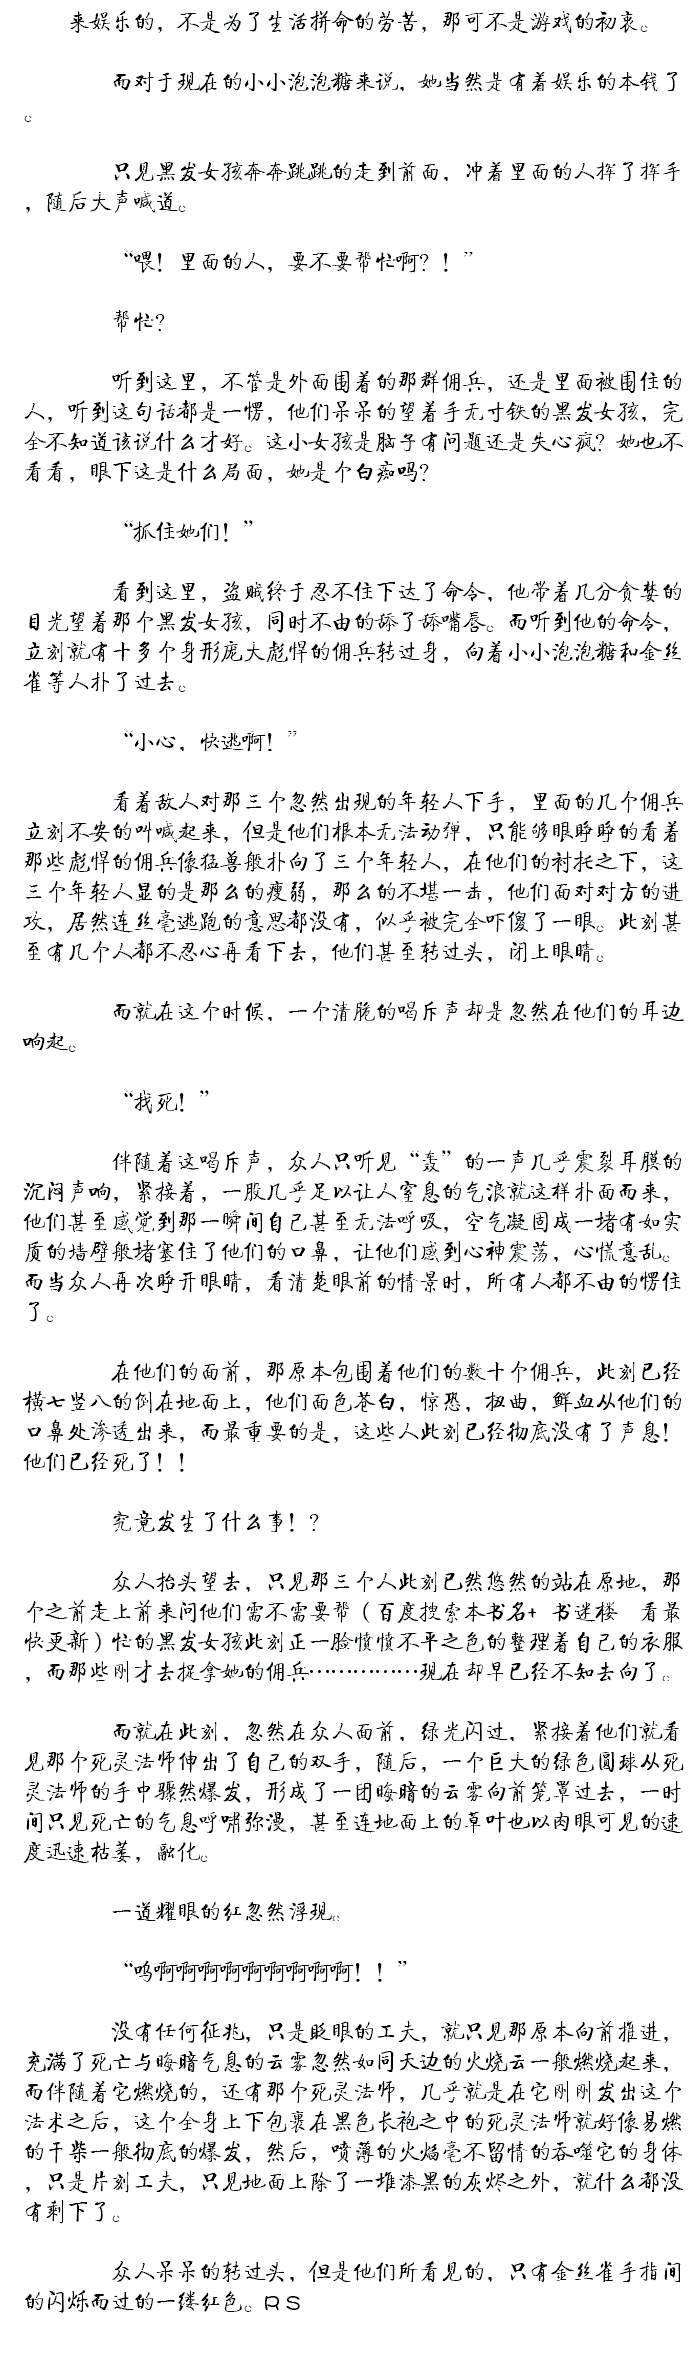 来娱乐的，不是为了生活拼命的劳苦，那可不是游戏的初衷。
而对于现在的小小泡泡糖来说，她当然是有着娱乐的本钱了
。
只见黑发女孩奔奔跳跳的走到前面，冲着里面的人挥了挥手
，随后大声喊道。
“喂！里面的人，要不要帮忙啊？！”
帮忙？
听到这里，不管是外面围着的那群佣兵，还是里面被围住的
人，听到这句话都是一愣，他们呆呆的望着手无寸铁的黑发女孩，完
全不知道该说什么才好。这小女孩是脑子有问题还是失心疯？她也不
看看，眼下这是什么局面，她是个白痴吗？
“抓住她们！”
看到这里，盗贼终于忍不住下达了命令，他带着几分贪婪的
目光望着那个黑发女孩，同时不由的舔了舔嘴唇。而听到他的命令，
立刻就有十多个身形庞大彪悍的佣兵转过身，向着小小泡泡糖和金丝
雀等人扑了过去。
“小心，快逃啊！”
看着敌人对那三个忽然出现的年轻人下手，里面的几个佣兵
立刻不安的叫喊起来，但是他们根本无法动弹，只能够眼睁睁的看着
那些彪悍的佣兵像猛兽般扑向了三个年轻人，在他们的衬托之下，这
三个年轻人显的是那么的瘦弱，那么的不堪一击，他们面对对方的进
攻，居然连丝毫逃跑的意思都没有，似乎被完全吓傻了一眼。此刻甚
至有几个人都不忍心再看下去，他们甚至转过头，闭上眼睛。
而就在这个时候，一个清脆的喝斥声却是忽然在他们的耳边
响起。
“找死！”
伴随着这喝斥声，众人只听见“轰”的一声几乎震裂耳膜的
沉闷声响，紧接着，一股几乎足以让人窒息的气浪就这样扑面而来，
他们甚至感觉到那一瞬间自己甚至无法呼吸，空气凝固成一堵有如实
质的墙壁般堵塞住了他们的口鼻，让他们感到心神震荡，心慌意乱。
而当众人再次睁开眼睛，看清楚眼前的情景时，所有人都不由的愣住
了。
在他们的面前，那原本包围着他们的数十个佣兵，此刻已经
横七竖八的倒在地面上，他们面色苍白，惊恐，扭曲，鲜血从他们的
口鼻处渗透出来，而最重要的是，这些人此刻已经彻底没有了声息！
他们已经死了！！
究竟发生了什么事！？
众人抬头望去，只见那三个人此刻已然悠然的站在原地，那
个之前走上前来问他们需不需要帮（百度搜索本书名+ 书迷楼 看最
快更新）忙的黑发女孩此刻正一脸愤愤不平之色的整理着自己的衣服
，而那些刚才去捉拿她的佣兵……………现在却早已经不知去向了。
而就在此刻，忽然在众人面前，绿光闪过，紧接着他们就看
见那个死灵法师伸出了自己的双手，随后，一个巨大的绿色圆球从死
灵法师的手中骤然爆发，形成了一团晦暗的云雾向前笼罩过去，一时
间只见死亡的气息呼啸弥漫，甚至连地面上的草叶也以肉眼可见的速
度迅速枯萎，融化。
一道耀眼的红忽然浮现。
“呜啊啊啊啊啊啊啊啊啊！！”
没有任何征兆，只是眨眼的工夫，就只见那原本向前推进，
充满了死亡与晦暗气息的云雾忽然如同天边的火烧云一般燃烧起来，
而伴随着它燃烧的，还有那个死灵法师，几乎就是在它刚刚发出这个
法术之后，这个全身上下包裹在黑色长袍之中的死灵法师就好像易燃
的干柴一般彻底的爆发，然后，喷薄的火焰毫不留情的吞噬它的身体
，只是片刻工夫，只见地面上除了一堆漆黑的灰烬之外，就什么都没
有剩下了。
众人呆呆的转过头，但是他们所看见的，只有金丝雀手指间
的闪烁而过的一缕红色。RS